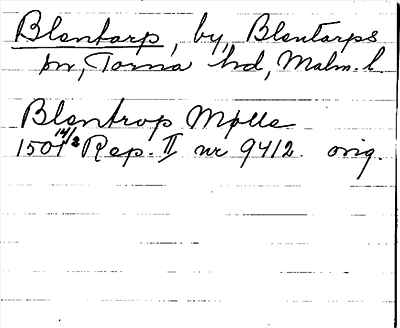 Blentarp, by, Blentarps
sn, Torna hd, Malm. l
Blentrop Mølle
1501 14/2 Rep. II nr 9412. orig.